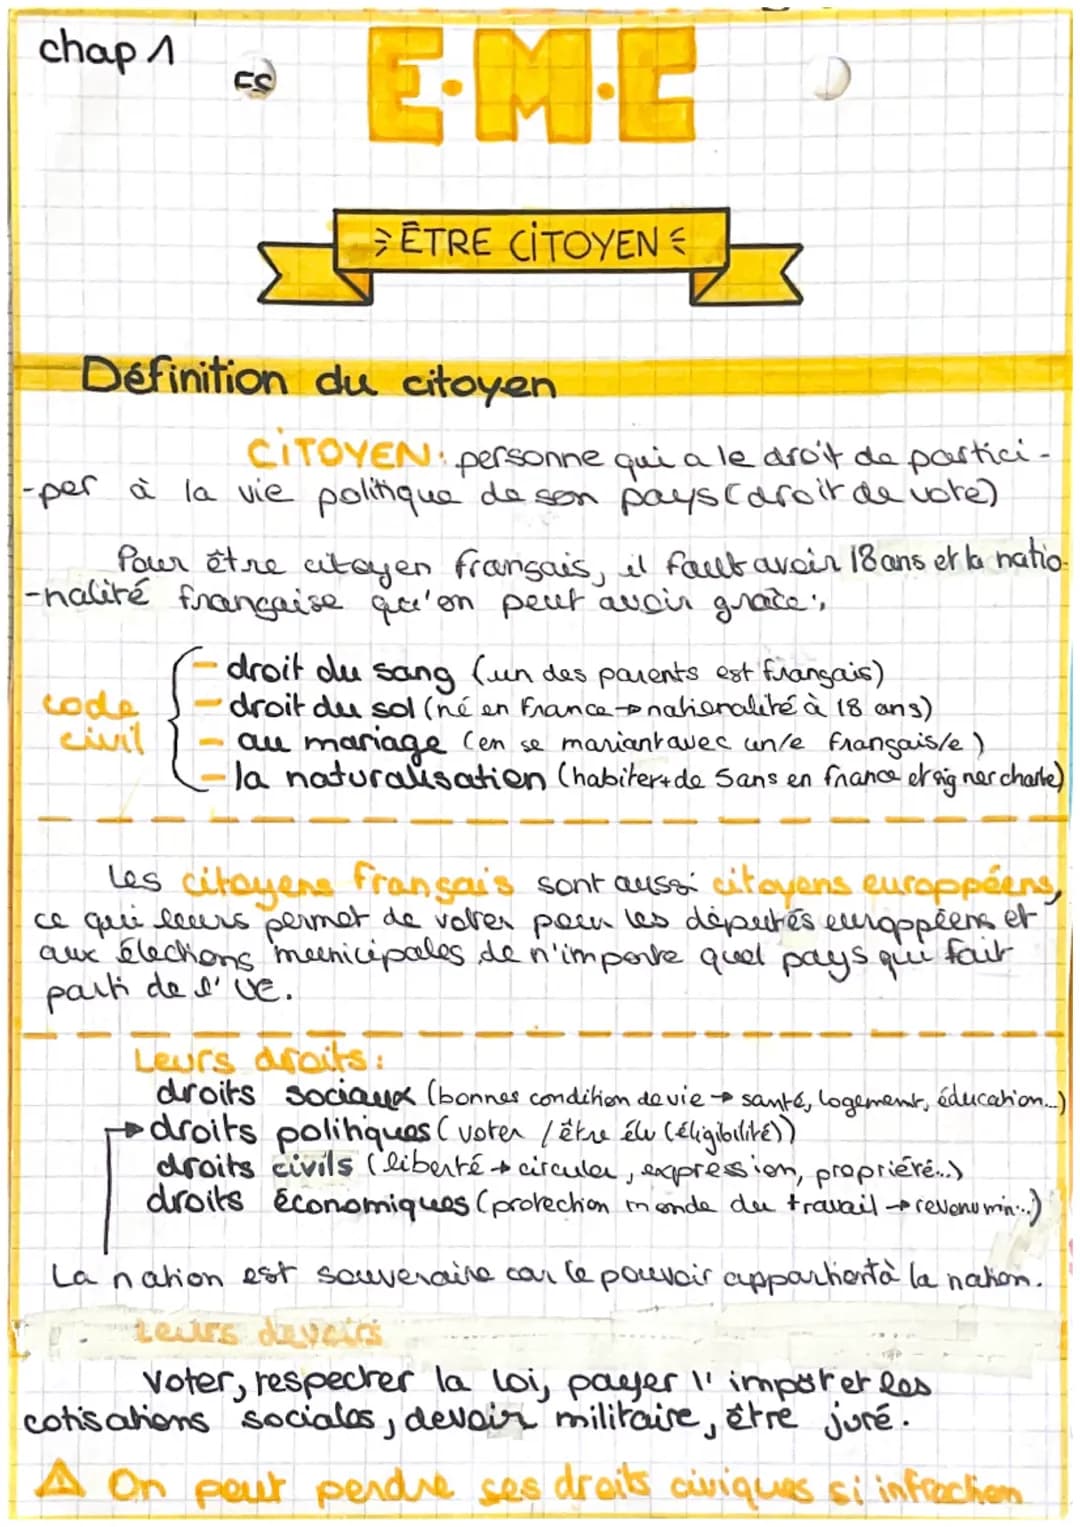 chap 1
E.M.C
ÊTRE CITOYEN
Définition du citoyen
CITOYEN: personne qui a le droit de partici-
-per à la vie politique de son pays (droit de vote)
Pour être citoyen français, il faut avoir 18 ans et la natio-
-nalité française qu'on peut avoir grace:
- droit du sang (un des parents est français)
code civil
- droit du sol (né en France → nationalité à 18 ans)
- au mariage (en se mariant avec un/e français/e)
- la naturalisation (habiter + de 5 ans en france et signer charte)
Les citoyens français sont aussi citoyens europpéens,
ce qui leurs permet de voter pour les députés europpéens et
aux élections municipales de n'importe quel pays qui fait
parti de l'UE.
Leurs droits:
droits sociaux (bonnes condition de vie → santé, logement, éducation...)
→ droits politiques (voter / être élu (éligibilité))
droits civils (liberté → circuler, expression, propriété...)
droits économiques (protection monde du travail → revenu min...)
La nation est souveraine car le pouvoir appartient à la nation.
Leurs devoirs
Voter, respecter la loi, payer l'impôt et les
cotisations sociales, devoir militaire, être juré.
⚠ On peut perdre ses droits civiques si infraction